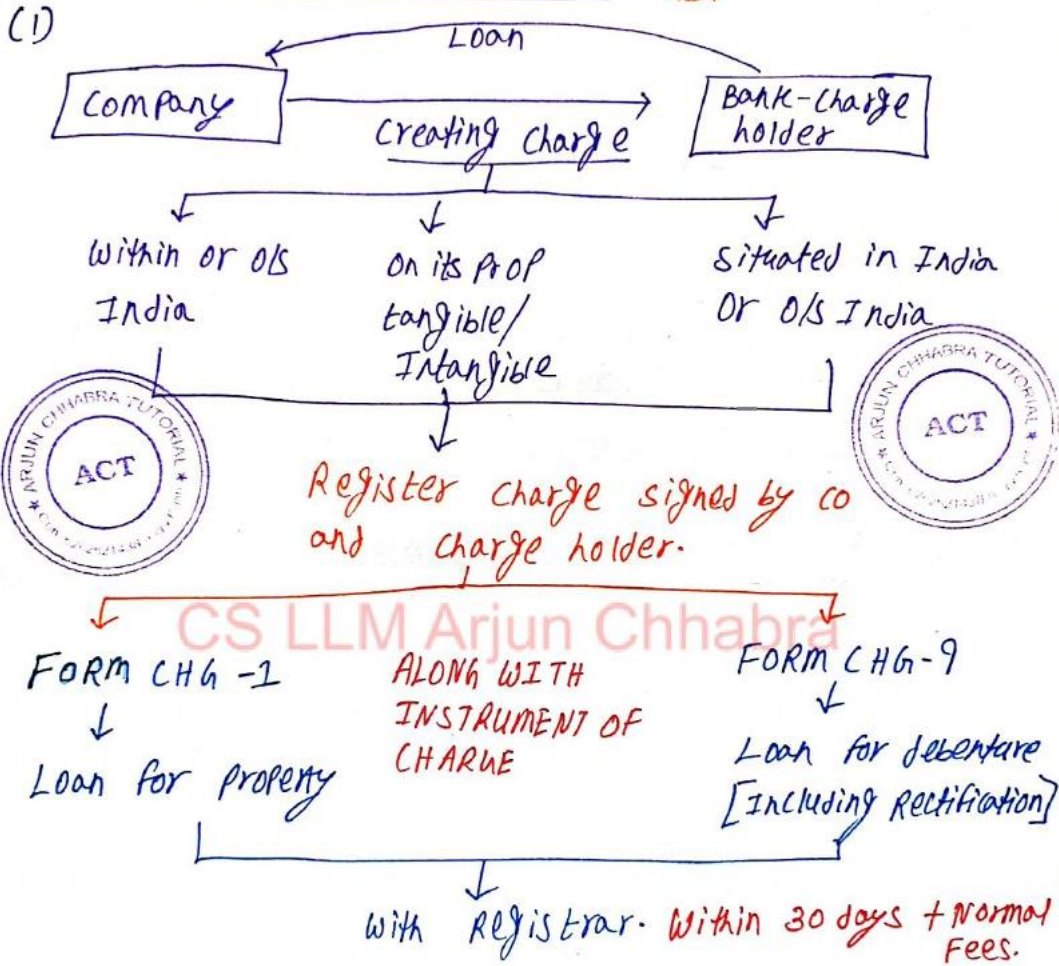 (1)
Loan
Company
Creating Charge
Bank-Charge
holder
Within or o/s
India
On its prop
tangible/
Intangible
situated in India
Or o/s India
ARJUN CHHABRA TUTORIAL
ACT
ARJUN CHHABRA TUTORIAL
ACT
Register charge signed by co
and charge holder.
CS LLM Arjun Chhabra
FORM CHG-1
ALONG WITH
INSTRUMENT OF
CHARGE
FORM CHG-9
Loan for property
Loan for debenture
[Including Rectification]
with Registrar. Within 30 days + Normal
Fees.